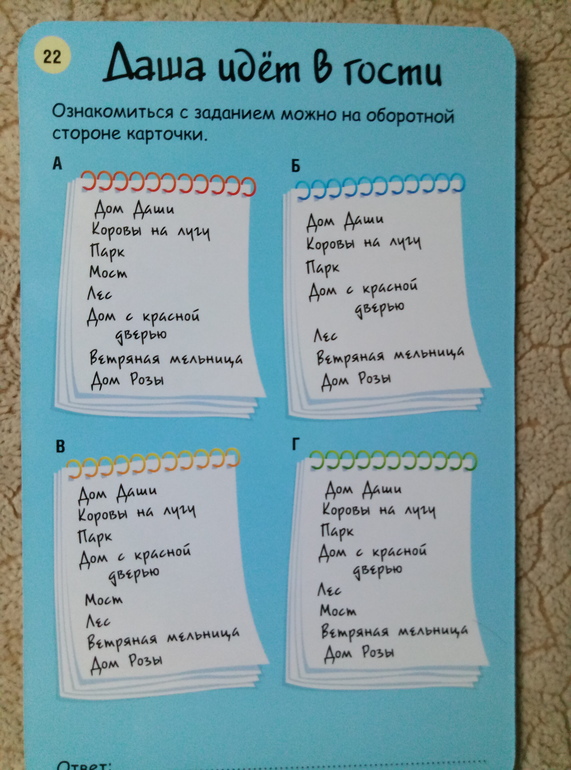 22
Даша идёт в гости
Ознакомиться с заданием можно на оборотной
стороне карточки.
А
Дом Даши
Коровы на лугу
Парк
Мост
Лес
Дом с красной
дверью
Ветряная мельница
Дом Розы
Б
Дом Даши
Коровы на лугу
Парк
Дом с красной
дверью
Лес
Ветряная мельница
Дом Розы
В
Дом Даши
Коровы на лугу
Парк
Дом с красной
дверью
Мост
Лес
Ветряная мельница
Дом Розы
Г
Дом Даши
Коровы на лугу
Парк
Дом с красной
дверью
Лес
Мост
Ветряная мельница
Дом Розы
Ответ: